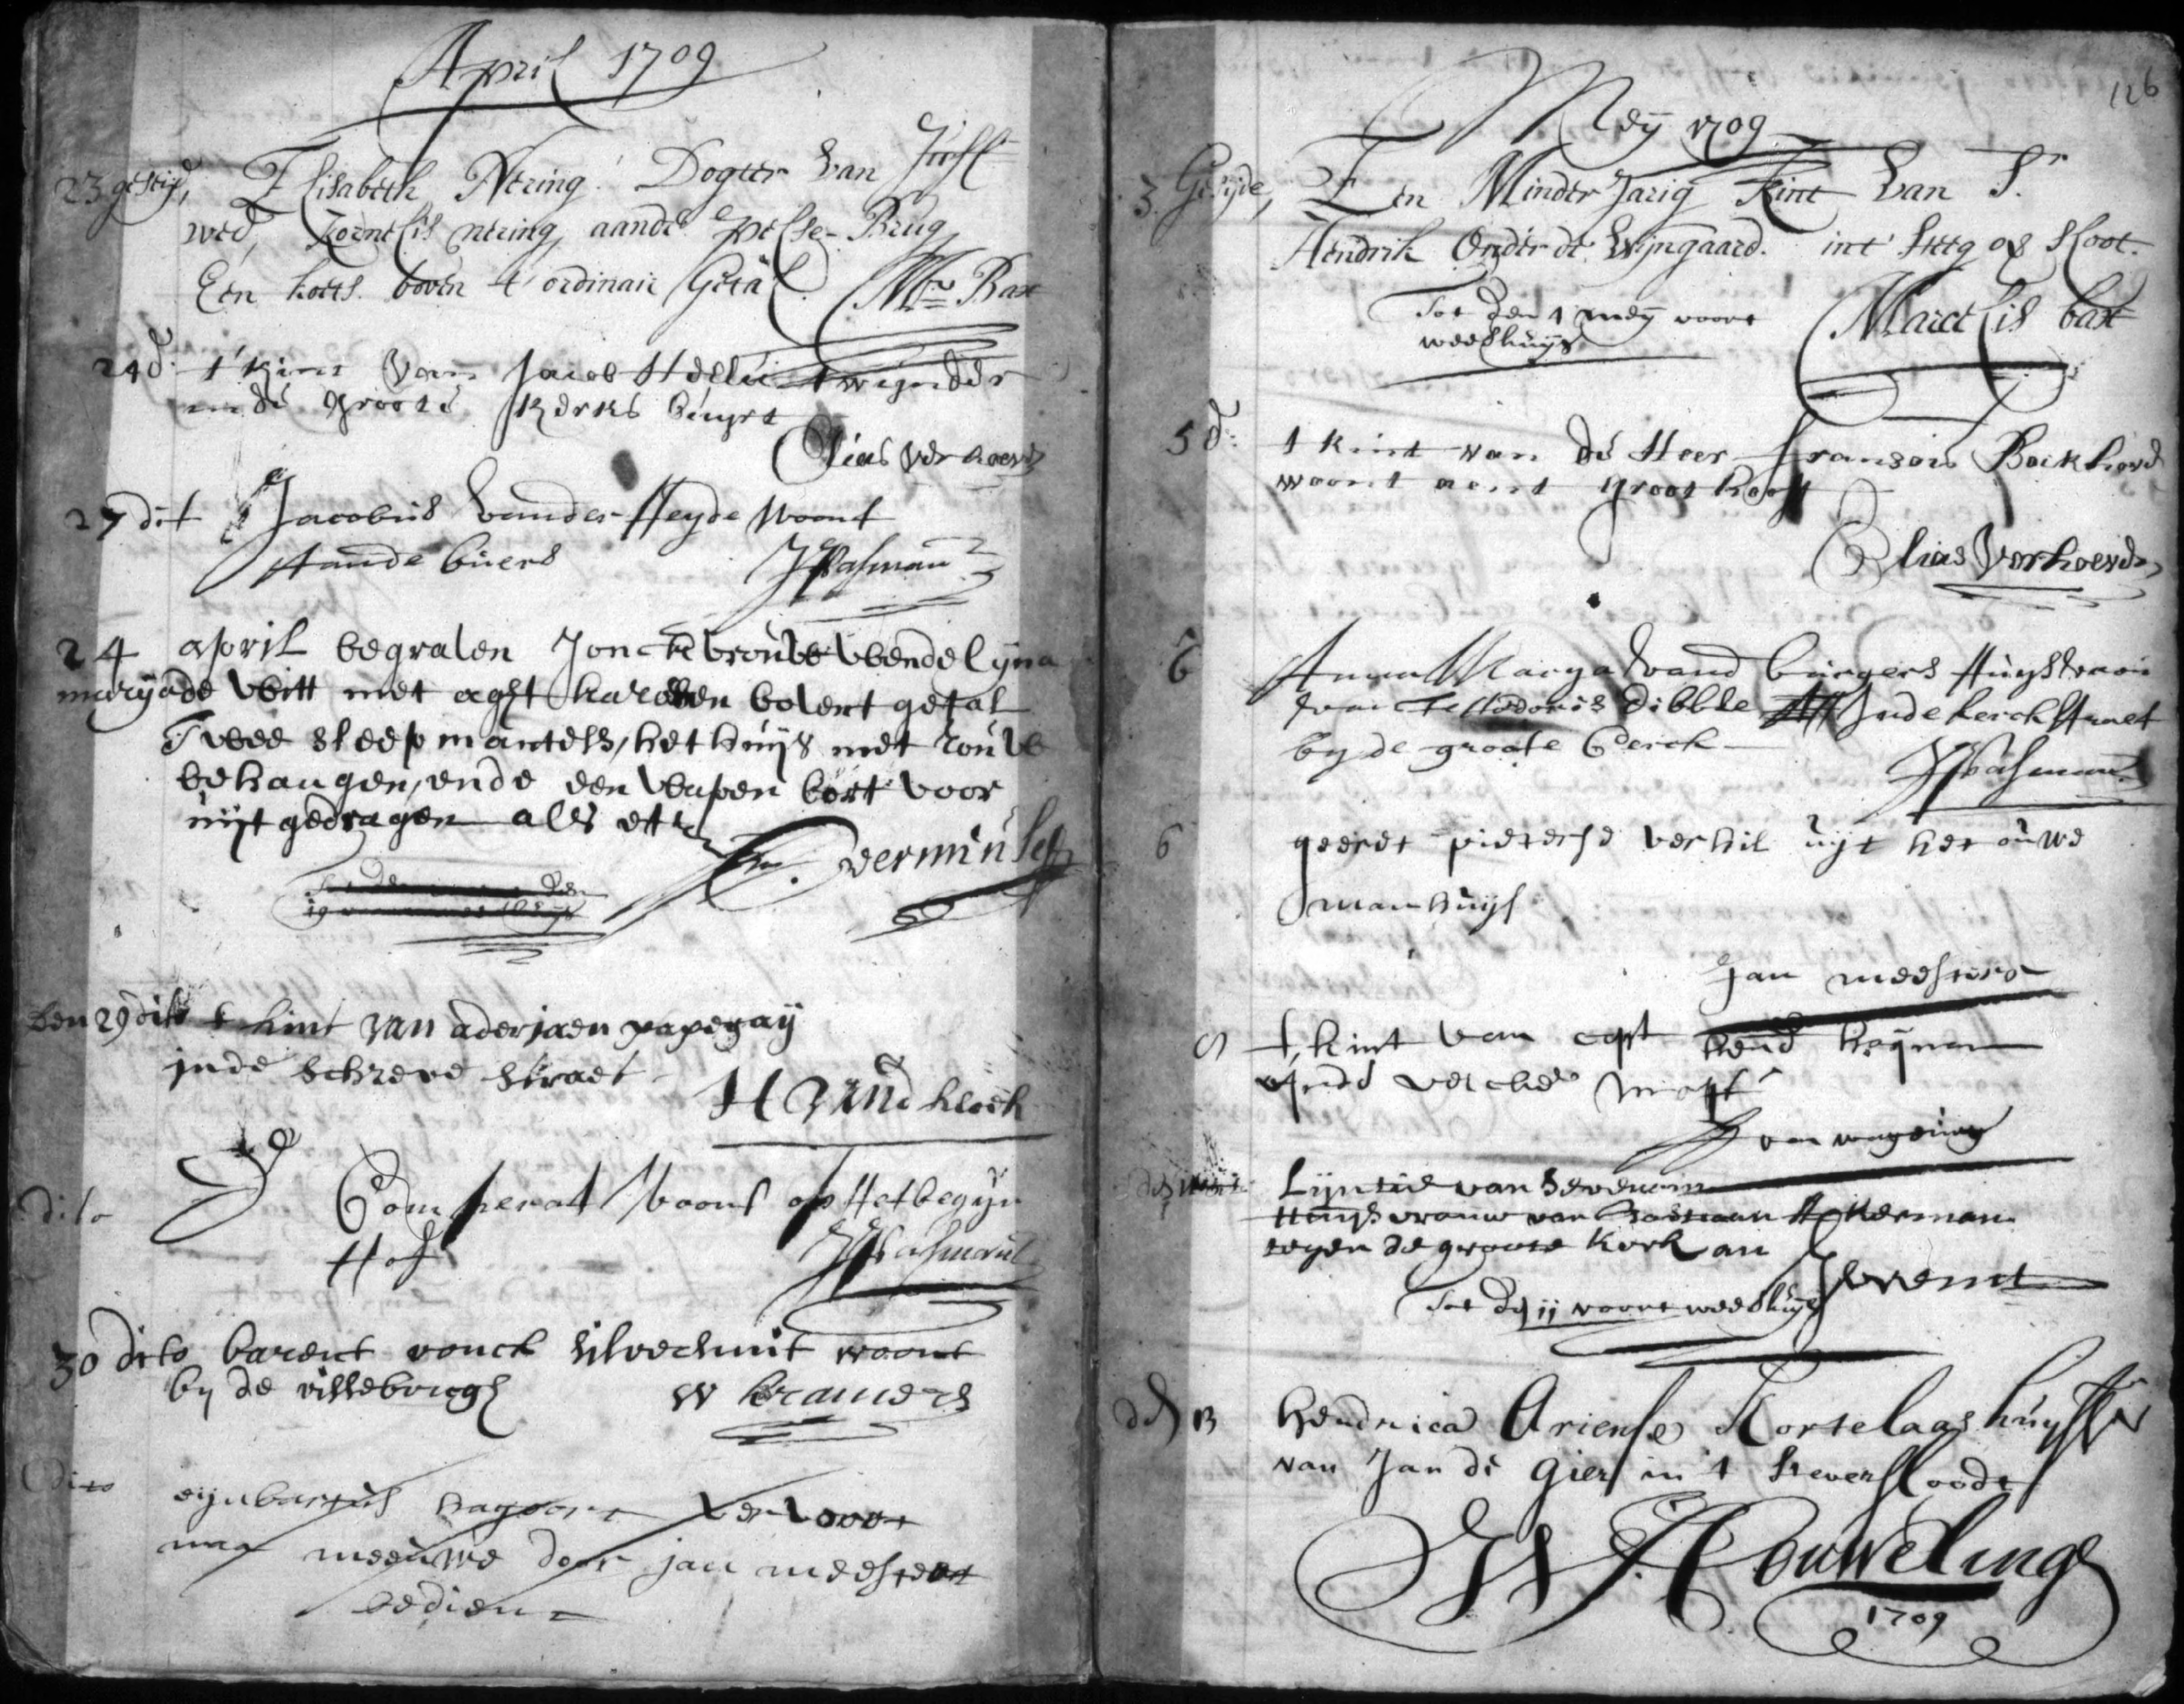 April 1709
23 gestif, Elisabeth Nering Dogter van Juff
wed, Kornelis nering aande pelse-Brug
Een koets boven t' ordinair Getal Mrs Bax
24 d t' kint van Jacob twijnder
in de groote kerks buyrt
Elias verhoevd
27 dit Jacobus vander Heyde woont
Aande buers JPasman
24 april begraven Jonckvrouwe Wendelyna
marya de Witt met aght karossen bovent getal
Twee sleep mantels, het huijs met rouwe
behangen, ende een wapen bort voor
uijt gedragen als ett
vermeulen
den 29 dito t kint van aderjaen papegaij
inde schreve straet
H vand kloek
dito Comperat Woont op Het begijn
Hof JPasman
30 dito barent vonck silversmit woont
bij de visse brugh W kramers
dito eijnbartus hagoort vervoort
na meeuwe door jan meesters
bedient
126
Meÿ 1709
3. Gesijde, Een Minder Jarig Kint van Sr
Hendrik Onder de Wijngaard. int steeg op sloot.
Tot den 1 meij voort
weeshuijs
Marcelis bax
5 d: t kint van de Heer fransois Boickhoud
woont aent groot hooft
Elias Verhoevd
6 Anna Marya vand burgers Huysvrou
van Teodoris Dibble Inde kerck straet
by de groote Cerck
JPasman
6 geeret pieterse verhil uijt het ouwe
manhuijs
Jan meesters
t, kint van capt hend heijnen
opde
van wageninge
Lijntie van Sevencom
Huijsvrouw van Bastiaan Ackerman
tegen de groote kerk an
JWrent
Tot den 11 voort weeshuijs
den 13 hendrica Ariense Kortelaas huysvr
van Jan de Gier in 't stevensloodt
W. A Houwelingh
1709